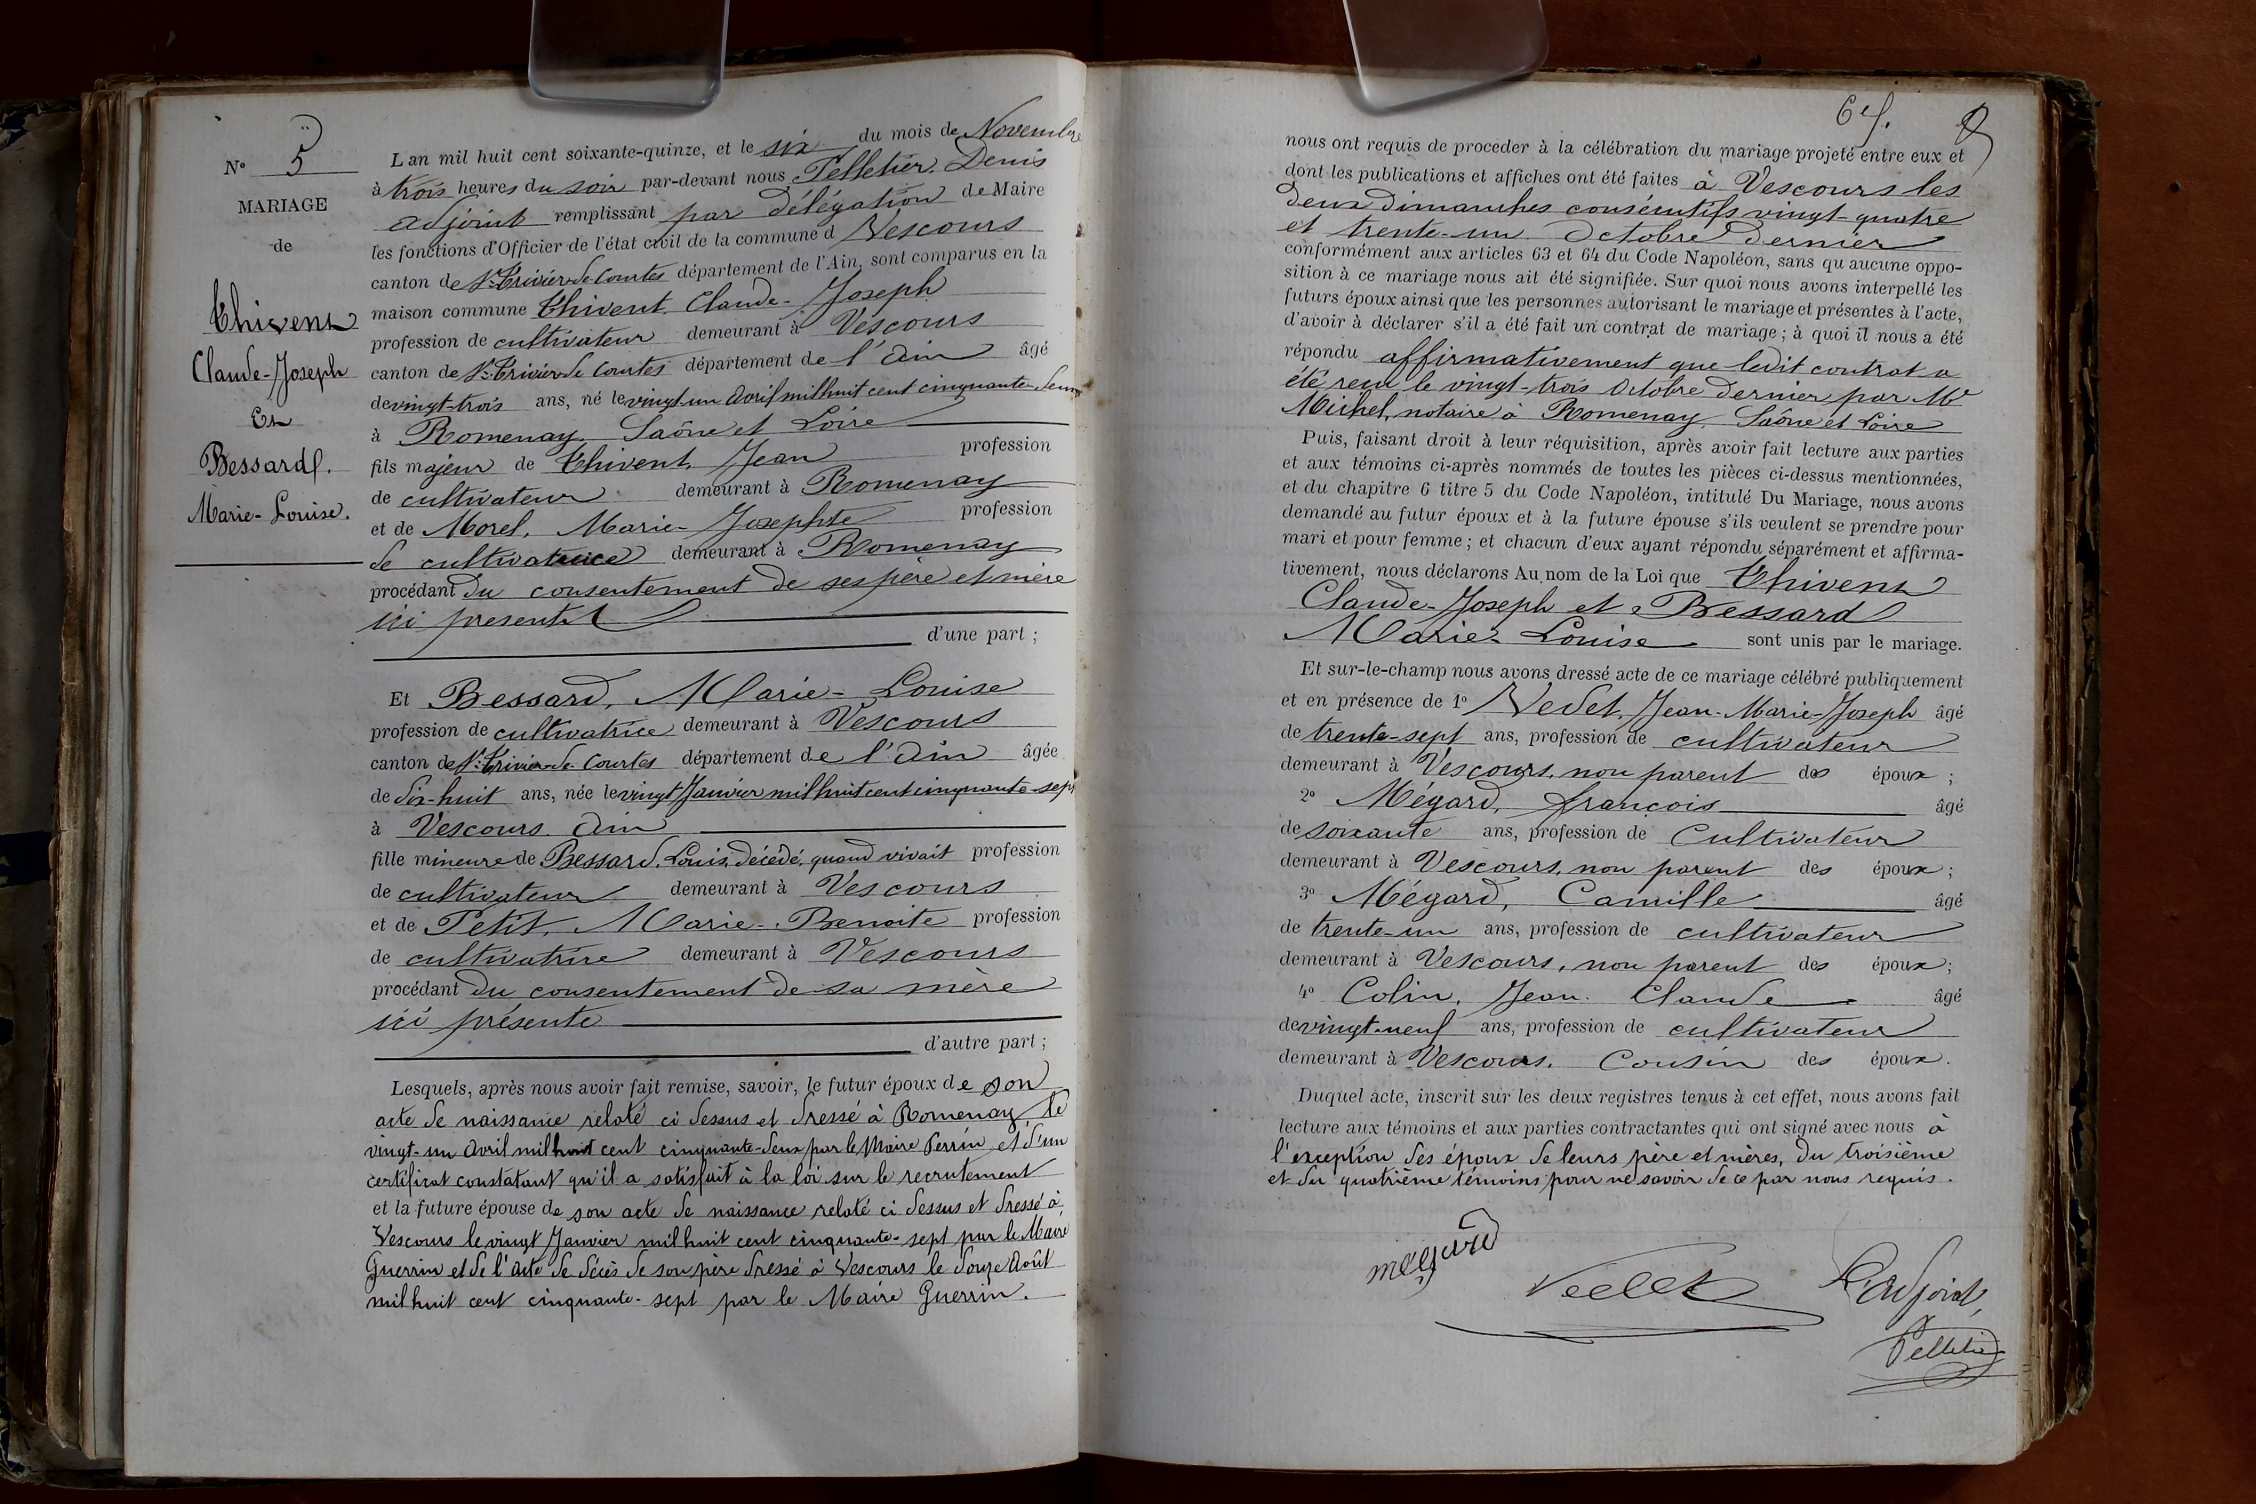 N° 5
MARIAGE
de
Thivent
Claude-Joseph
Et
Bessard.
Marie-Louise.
L'an mil huit cent soixante-quinze, et le six du mois de Novembre
à trois heures du soir par-devant nous Pelletier. Denis
adjoint remplissant par délégation de Maire
les fonctions d'Officier de l'état civil de la commune d Vescours
canton de St. Trivier de Courtes département de l'Ain, sont comparus en la
maison commune Thivent. Claude-Joseph
profession de cultivateur demeurant à Vescours
canton de St. Trivier de Courtes département de l'Ain âgé
de vingt-trois ans, né le vingt-un Avril mil huit cent cinquante-deux
à Romenay. Saône et Loire
fils majeur de Thivent. Jean profession
de cultivateur demeurant à Romenay
et de Morel. Marie-Josephte profession
de cultivatrice demeurant à Romenay
procédant du consentement de ses père et mère
ici present
d'une part ;
Et Bessard, Marie-Louise
profession de cultivatrice demeurant à Vescours
canton de St. Trivier de Courtes département de l'Ain âgée
de dix-huit ans, née le vingt Janvier mil huit cent cinquante-sept
à Vescours. Ain
fille mineure de Bessard. Louis, décédé, quand vivait profession
de cultivateur demeurant à Vescours
et de Petit. Marie-Benoite profession
de cultivatrice demeurant à Vescours
procédant du consentement de sa mère
ici présente
d'autre part ;
Lesquels, après nous avoir fait remise, savoir, le futur époux de son
acte de naissance relaté ci dessus et dressé à Romenay le
vingt-un Avril mil huit cent cinquante-deux par le Maire Perrin et d'un
certificat constatant qu'il a satisfait à la loi sur le recrutement
et la future épouse de son acte de naissance relaté ci dessus et dressé à
Vescours le vingt Janvier mil huit cent cinquante-sept par le Maire
Guerrin et de l'acte de décès de son père dressé à Vescours le douze Août
mil huit cent cinquante-sept par le Maire Guerrin.
nous ont requis de procéder à la célébration du mariage projeté entre eux et
dont les publications et affiches ont été faites à Vescours les
deux dimanches consécutifs vingt-quatre
et trente-un Octobre dernier
conformément aux articles 63 et 64 du Code Napoléon, sans qu'aucune oppo-
sition à ce mariage nous ait été signifiée. Sur quoi nous avons interpellé les
futurs époux ainsi que les personnes autorisant le mariage et présentes à l'acte,
d'avoir à déclarer s'il a été fait un contrat de mariage ; à quoi il nous a été
répondu affirmativement que ledit contrat a
été reçu le vingt-trois Octobre dernier par Me
Michel, notaire à Romenay. Saône et Loire
Puis, faisant droit à leur réquisition, après avoir fait lecture aux parties
et aux témoins ci-après nommés de toutes les pièces ci-dessus mentionnées,
et du chapitre 6 titre 5 du Code Napoléon, intitulé Du Mariage, nous avons
demandé au futur époux et à la future épouse s'ils veulent se prendre pour
mari et pour femme ; et chacun d'eux ayant répondu séparément et affirma-
tivement, nous déclarons Au nom de la Loi que Thivent
Claude-Joseph et Bessard
Marie-Louise sont unis par le mariage.
Et sur-le-champ nous avons dressé acte de ce mariage célébré publiquement
et en présence de 1° Vedet. Jean-Marie-Joseph âgé
de trente-sept ans, profession de cultivateur
demeurant à Vescours. non parent des époux ;
2° Mégard, françois âgé
de soixante ans, profession de Cultivateur
demeurant à Vescours. non parent des époux ;
3° Mégard, Camille âgé
de trente-un ans, profession de cultivateur
demeurant à Vescours, non parent des époux ;
4° Colin. Jean Claude âgé
de vingt-neuf ans, profession de cultivateur
demeurant à Vescours. Cousin des époux.
Duquel acte, inscrit sur les deux registres tenus à cet effet, nous avons fait
lecture aux témoins et aux parties contractantes qui ont signé avec nous à
l'exception des époux de leurs père et mères, du troisième
et du quatrième témoins pour ne savoir de ce par nous requis.
megard
Vedet
L'adjoint,
Pelletier